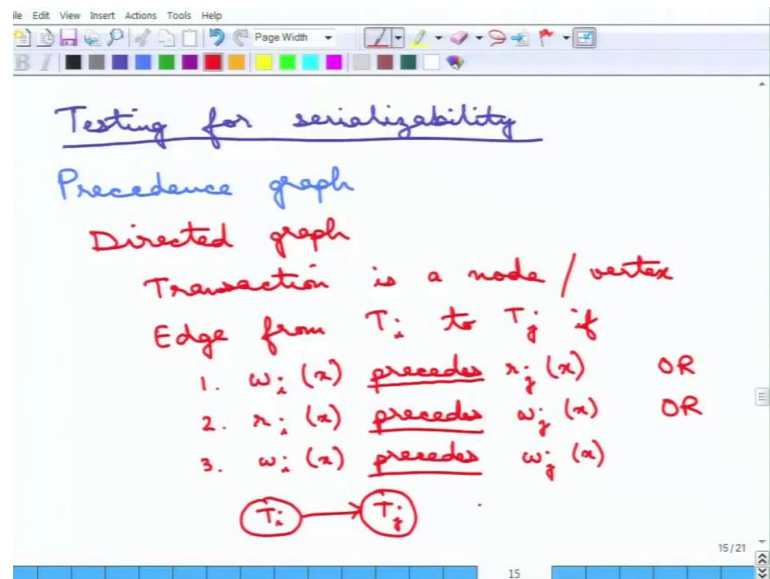 ile Edit View Insert Actions Tools Help
Page Width
B I
Testing for serializability
Precedence graph
Directed graph
Transaction is a node / vertex
Edge from Ti to Tj if
1. wi (x) precedes rj (x) OR
2. ri (x) precedes wj (x) OR
3. wi (x) precedes wj (x)
Ti Tj
15/21
15